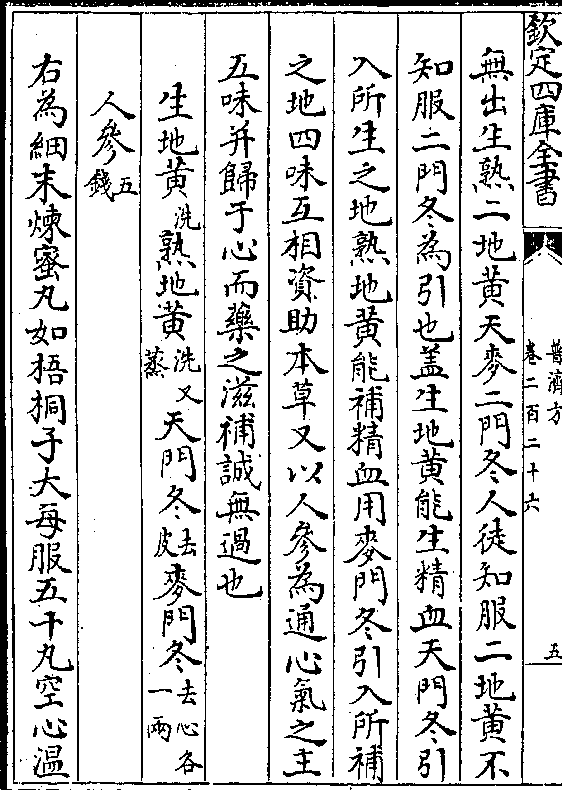 欽定四庫全書
普濟方
卷二百二十六
五
無出生熟二地黄天麥二門冬人徒知服二地黄不
知服二門冬為引也盖生地黄能生精血天門冬引
入所生之地熟地黄能補精血用麥門冬引入所補
之地四味互相資助本草又以人參為通心氣之主
五味并歸于心而藥之滋補誠無過也
生地黄洗熟地黄洗又蒸天門冬去皮麥門冬去心各一兩
人參五錢
右為細末煉蜜丸如梧桐子大每服五十丸空心温